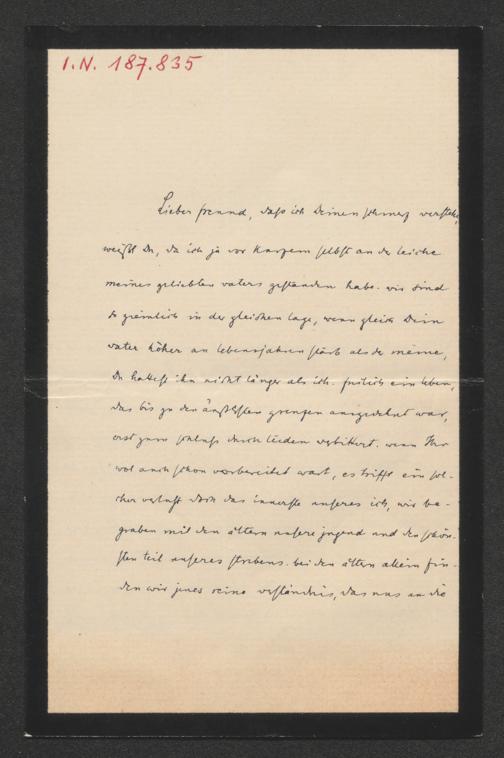 I.N. 187.835
Lieber freund, daß ich Deinen schmerz verstehe,
weißt Du, da ich ja vor kurzem selbst an der leiche
meines geliebten vaters gestanden habe. wir sind
so ziemlich in der gleichen lage, wenn gleich Dein
vater höher an lebensjahren starb als der meine,
Du hattest ihn nicht länger als ich. freilich ein leben,
das bis zu den äußersten grenzen ausgedehnt war,
erst zum schluss durch leiden verbittert. wenn Ihr
wol auch schon vorbereitet wart, es trifft ein sol-
cher verlust doch das innerste unseres ich, wir be-
graben mit den ältern unsere jugend und den schön-
sten teil unseres strebens. bei den ältern allein fin-
den wir jenes reine verständnis, das uns an die